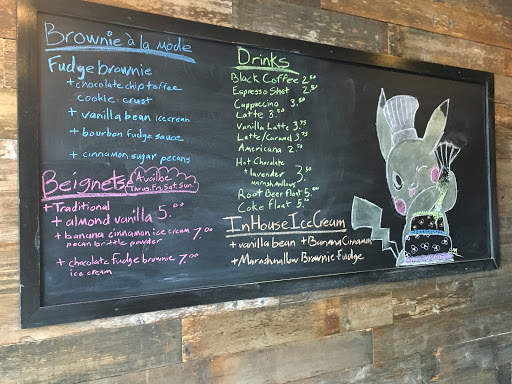 Brownie à la mode
Fudge brownie
+ chocolate chip toffee
cookie crust
+ vanilla bean icecream
+ bourbon fudge sauce
+ cinnamon sugar pecans
Beignets
Thurs. Fri. Sat. Sun.
+ Traditional
+ almond vanilla 5.00
+ banana cinnamon ice cream 7.00
pecan brittle powder
+ chocolate Fudge brownie 7.00
ice cream
Drinks
Black Coffee 2.00
Espresso Shot
Cappuccino
Latte
Vanilla Latte 3.75
Latte/Caramel 3.75
Americana
Hot Chocolate
+ lavender 3.50
marshmallows
Root Beer float 5.00
Coke float 5.00
In House Ice Cream
+ vanilla bean + Banana Cinnamon
+ Marshmallow Brownie Fudge